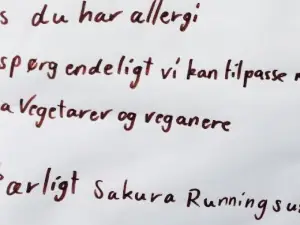 du har allergi
spørg endeligt vi kan tilpasse
Vegetarer og veganere
Sakura Running